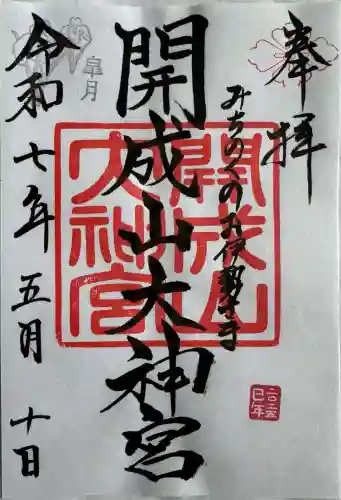 奉拝
みちのくのお伊勢さま
開成山大神宮
開成山
大神宮
皐月
令和七年五月十日
二〇二五
巳年